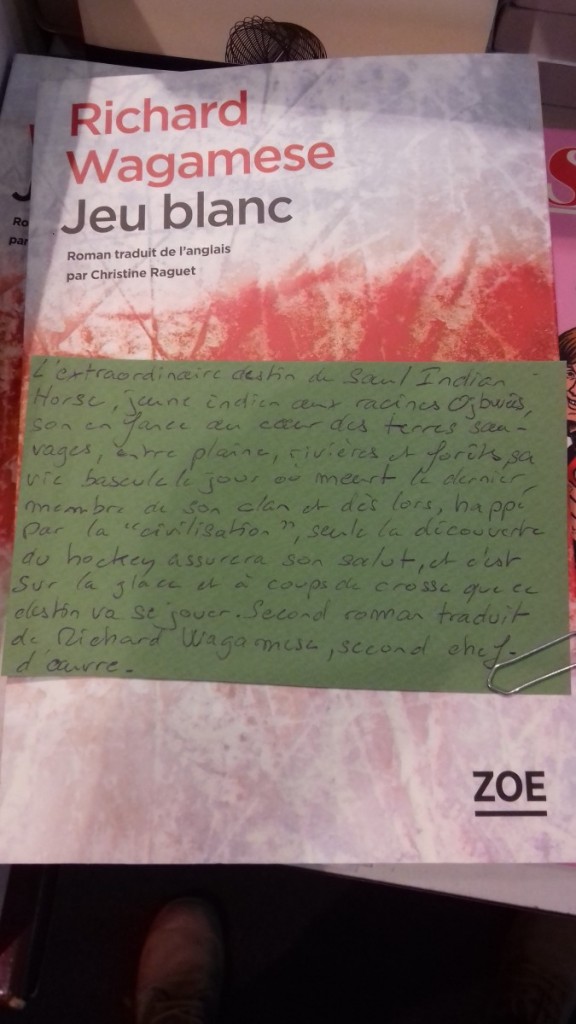 Richard
Wagamese
Jeu blanc
Roman traduit de l'anglais
par Christine Raguet
L'extraordinaire destin de Saul Indian
Horse, jeune indien aux racines Ojbwés,
son enfance au cœur des terres sau-
vages, entre plaine, rivières et forêts, sa
vie bascule le jour où meurt le dernier
membre de son clan et dès lors, happé
par la "civilisation", seule la découverte
du hockey assurera son salut, et c'est
sur la glace et à coups de crosse que ce
destin va se jouer. Second roman traduit
de Richard Wagamese, second chef-
d'œuvre.
ZOE
J
Ro
par
S